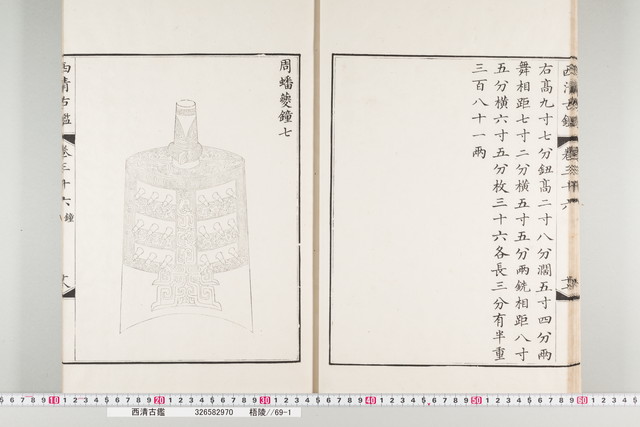 右高九寸七分鈕高二寸八分濶五寸四分兩
舞相距七寸二分橫五寸五分兩銑相距八寸
五分橫六寸五分枚三十六各長三分有半重
三百八十一兩
周蟠夔鐘七
西清古鑑
卷三十六 鐘
西清古鑑 326582970 梧陵//69-1
10 20 30 40 50 60